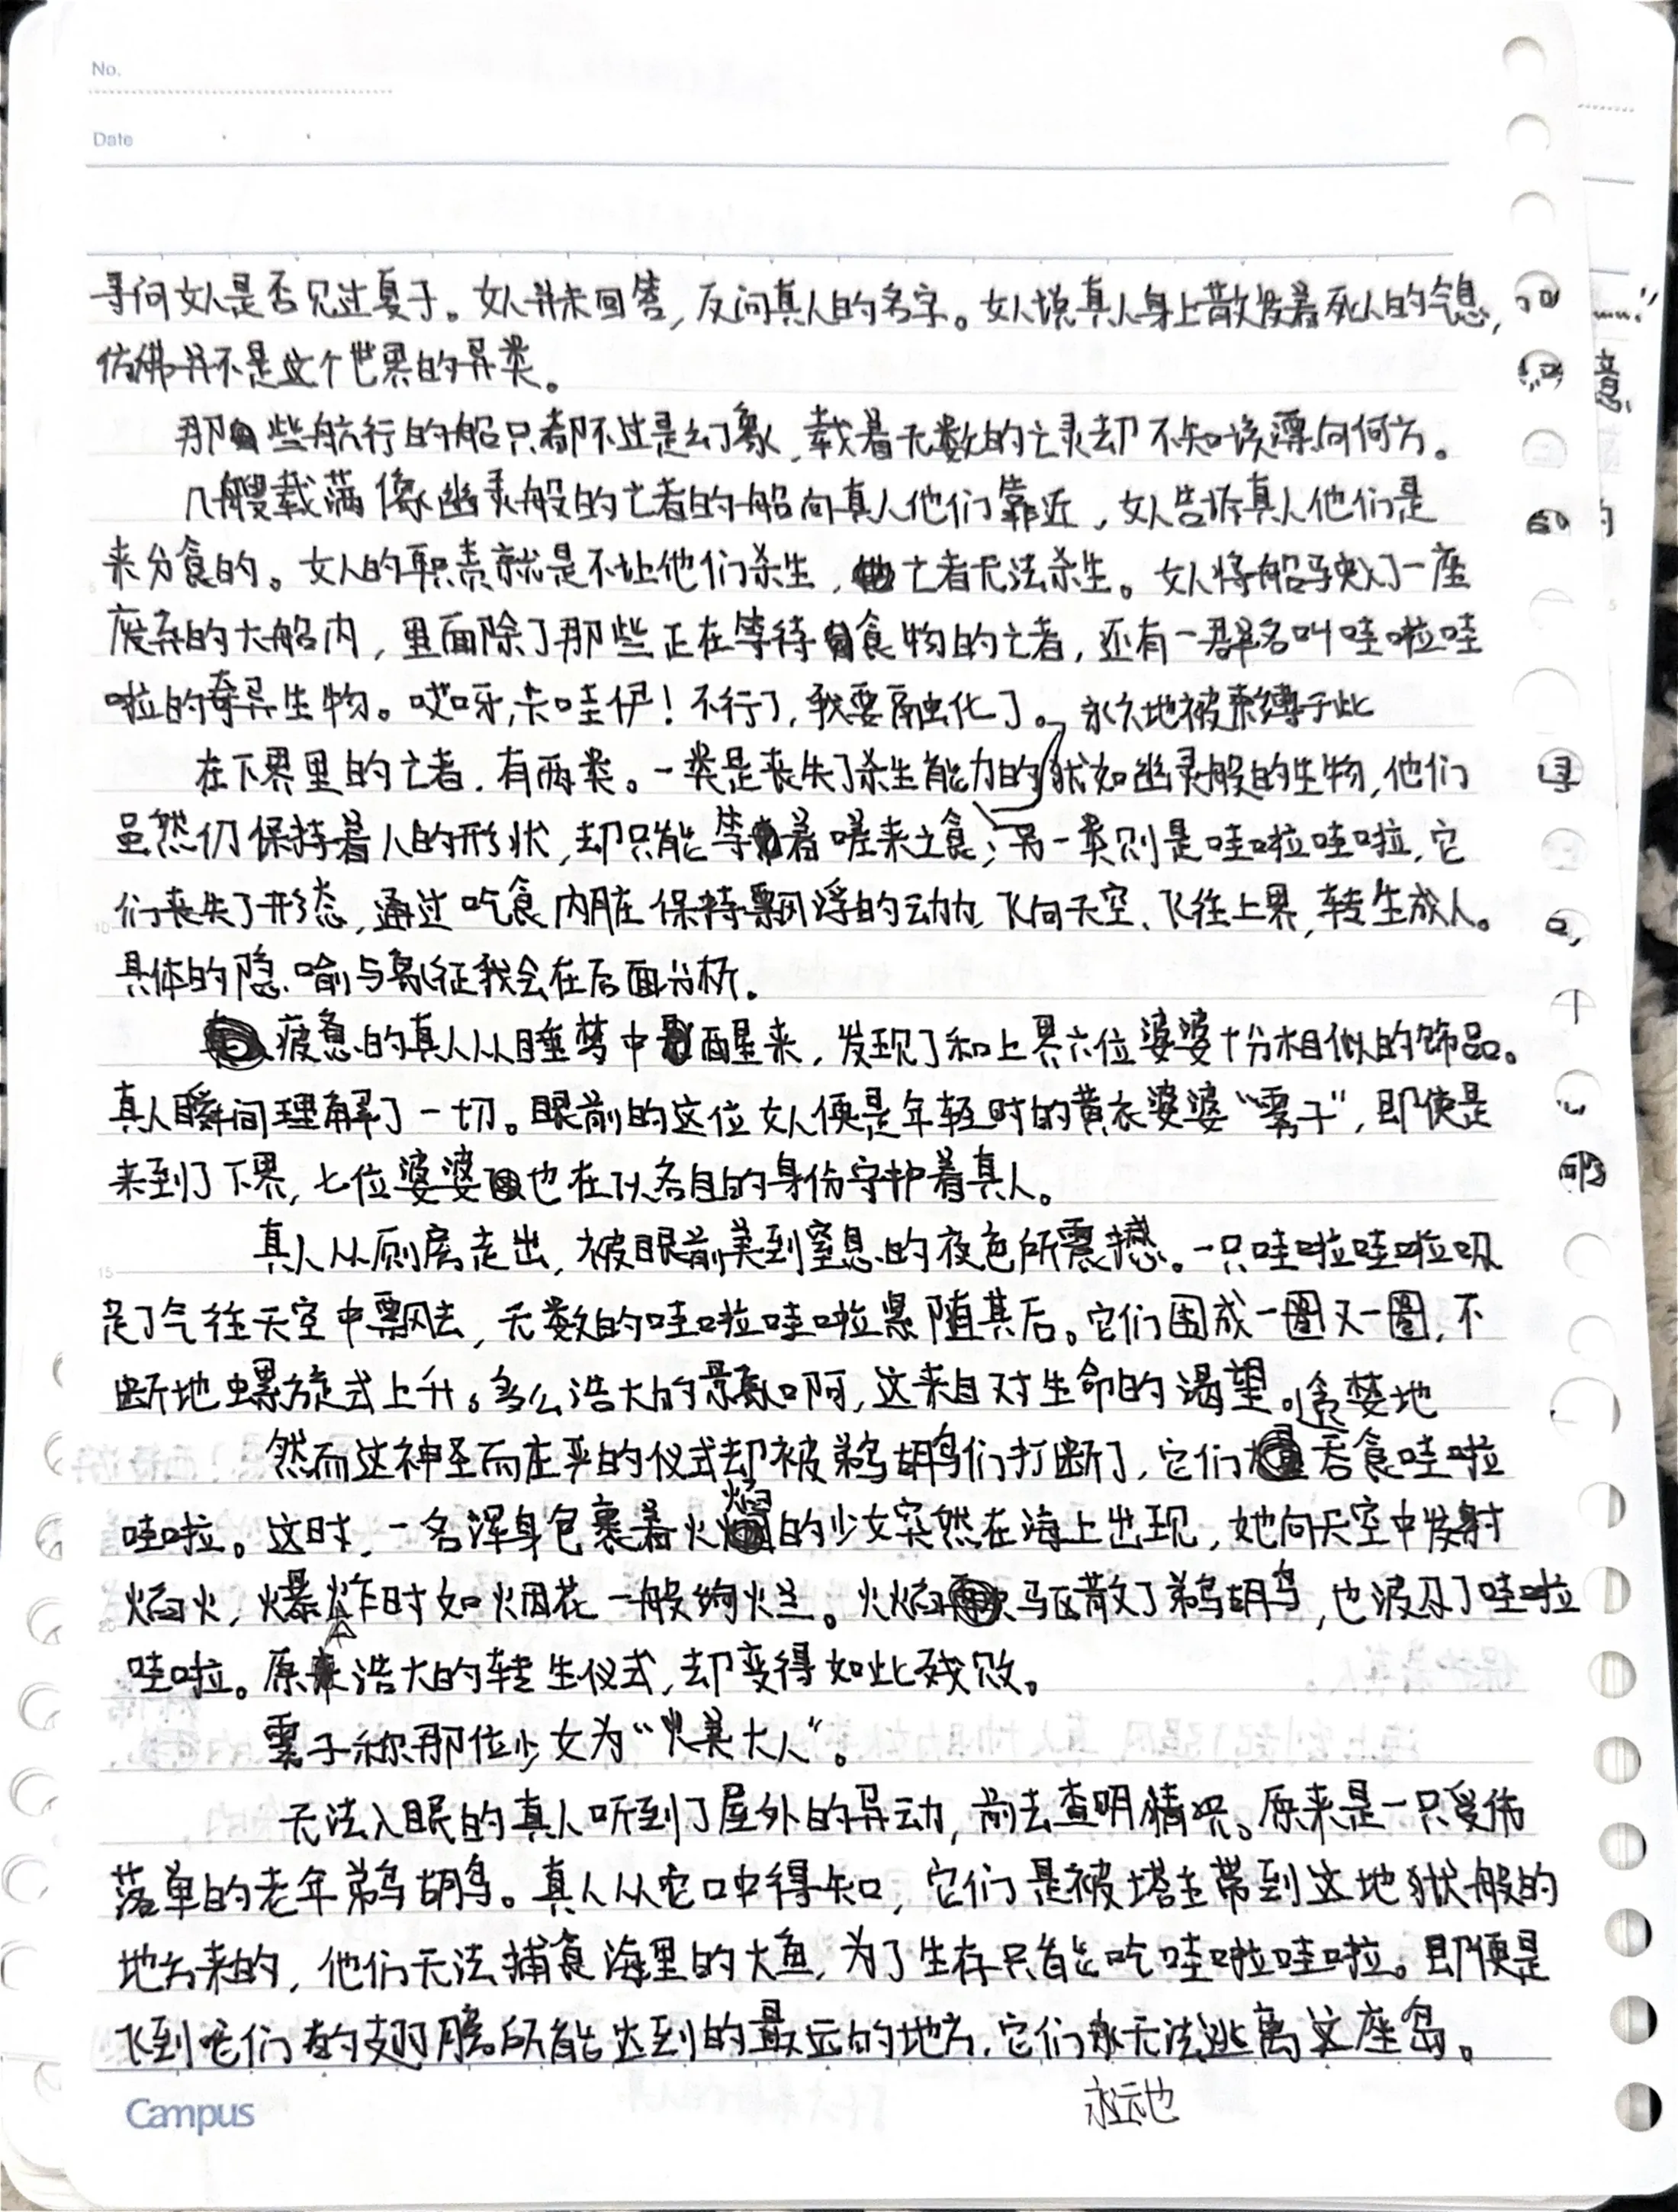 No.
Date
寻问女人是否见过夏子。女人并未回答,反问真人的名字。女人说真人身上散发着死人的气息,
仿佛并不是这个世界的异类。
那些航行的船只都不过是幻象,载着无数的亡灵却不知该漂向何方。
几艘载满像幽灵般的亡者的船向真人他们靠近,女人告诉真人他们是
来分食的。女人的职责就是不让他们杀生,亡者无法杀生。女人将船驶入了一座
废弃的大船内,里面除了那些正在等待食物的亡者,还有一群名叫哇啦哇
啦的奇异生物。哎呀,卡哇伊!不行了,我要融化了。永久地被束缚于此
在下界里的亡者,有两类。一类是丧失了杀生能力的犹如幽灵般的生物,他们
虽然仍保持着人的形状,却只能等着嗟来之食;另一类则是哇啦哇啦,它
们丧失了形态,通过吃食内脏保持飘浮的动力,飞向天空、飞往上界,转生成人。
具体的隐喻与象征我会在后面分析。
疲惫的真人从睡梦中醒来,发现了和上界六位婆婆十分相似的饰品。
真人瞬间理解了一切。眼前的这位女人便是年轻时的黄衣婆婆“雾子”,即使是
来到了下界,七位婆婆也在以各自的身份守护着真人。
真人从厕房走出,被眼前美到窒息的夜色所震撼。一只哇啦哇啦吸
足了气往天空中飘去,无数的哇啦哇啦紧随其后。它们围成一圈又一圈,不
断地螺旋式上升。多么浩大的景象啊,这来自对生命的渴望。贪婪地
然而这神圣而庄严的仪式却被鹈鹕鸟们打断了,它们吞食哇啦
哇啦。这时,一名浑身包裹着火焰的少女突然在海上出现,她向天空中发射
焰火,爆炸时如烟花一般绚烂。火焰驱散了鹈鹕鸟,也波及了哇啦
哇啦。原来浩大的转生仪式,却变得如此残败。
雾子称那位少女为“火美大人”。
无法入眠的真人听到了屋外的异动,前去查明情况。原来是一只受伤
落单的老年鹈鹕鸟。真人从它口中得知,它们是被塔主带到这地狱般的
地方来的,他们无法捕食海里的大鱼,为了生存只能吃哇啦哇啦。即便是
飞到它们的翅膀所能达到的最远的地方,它们永无法逃离这座岛。
永远地
Campus